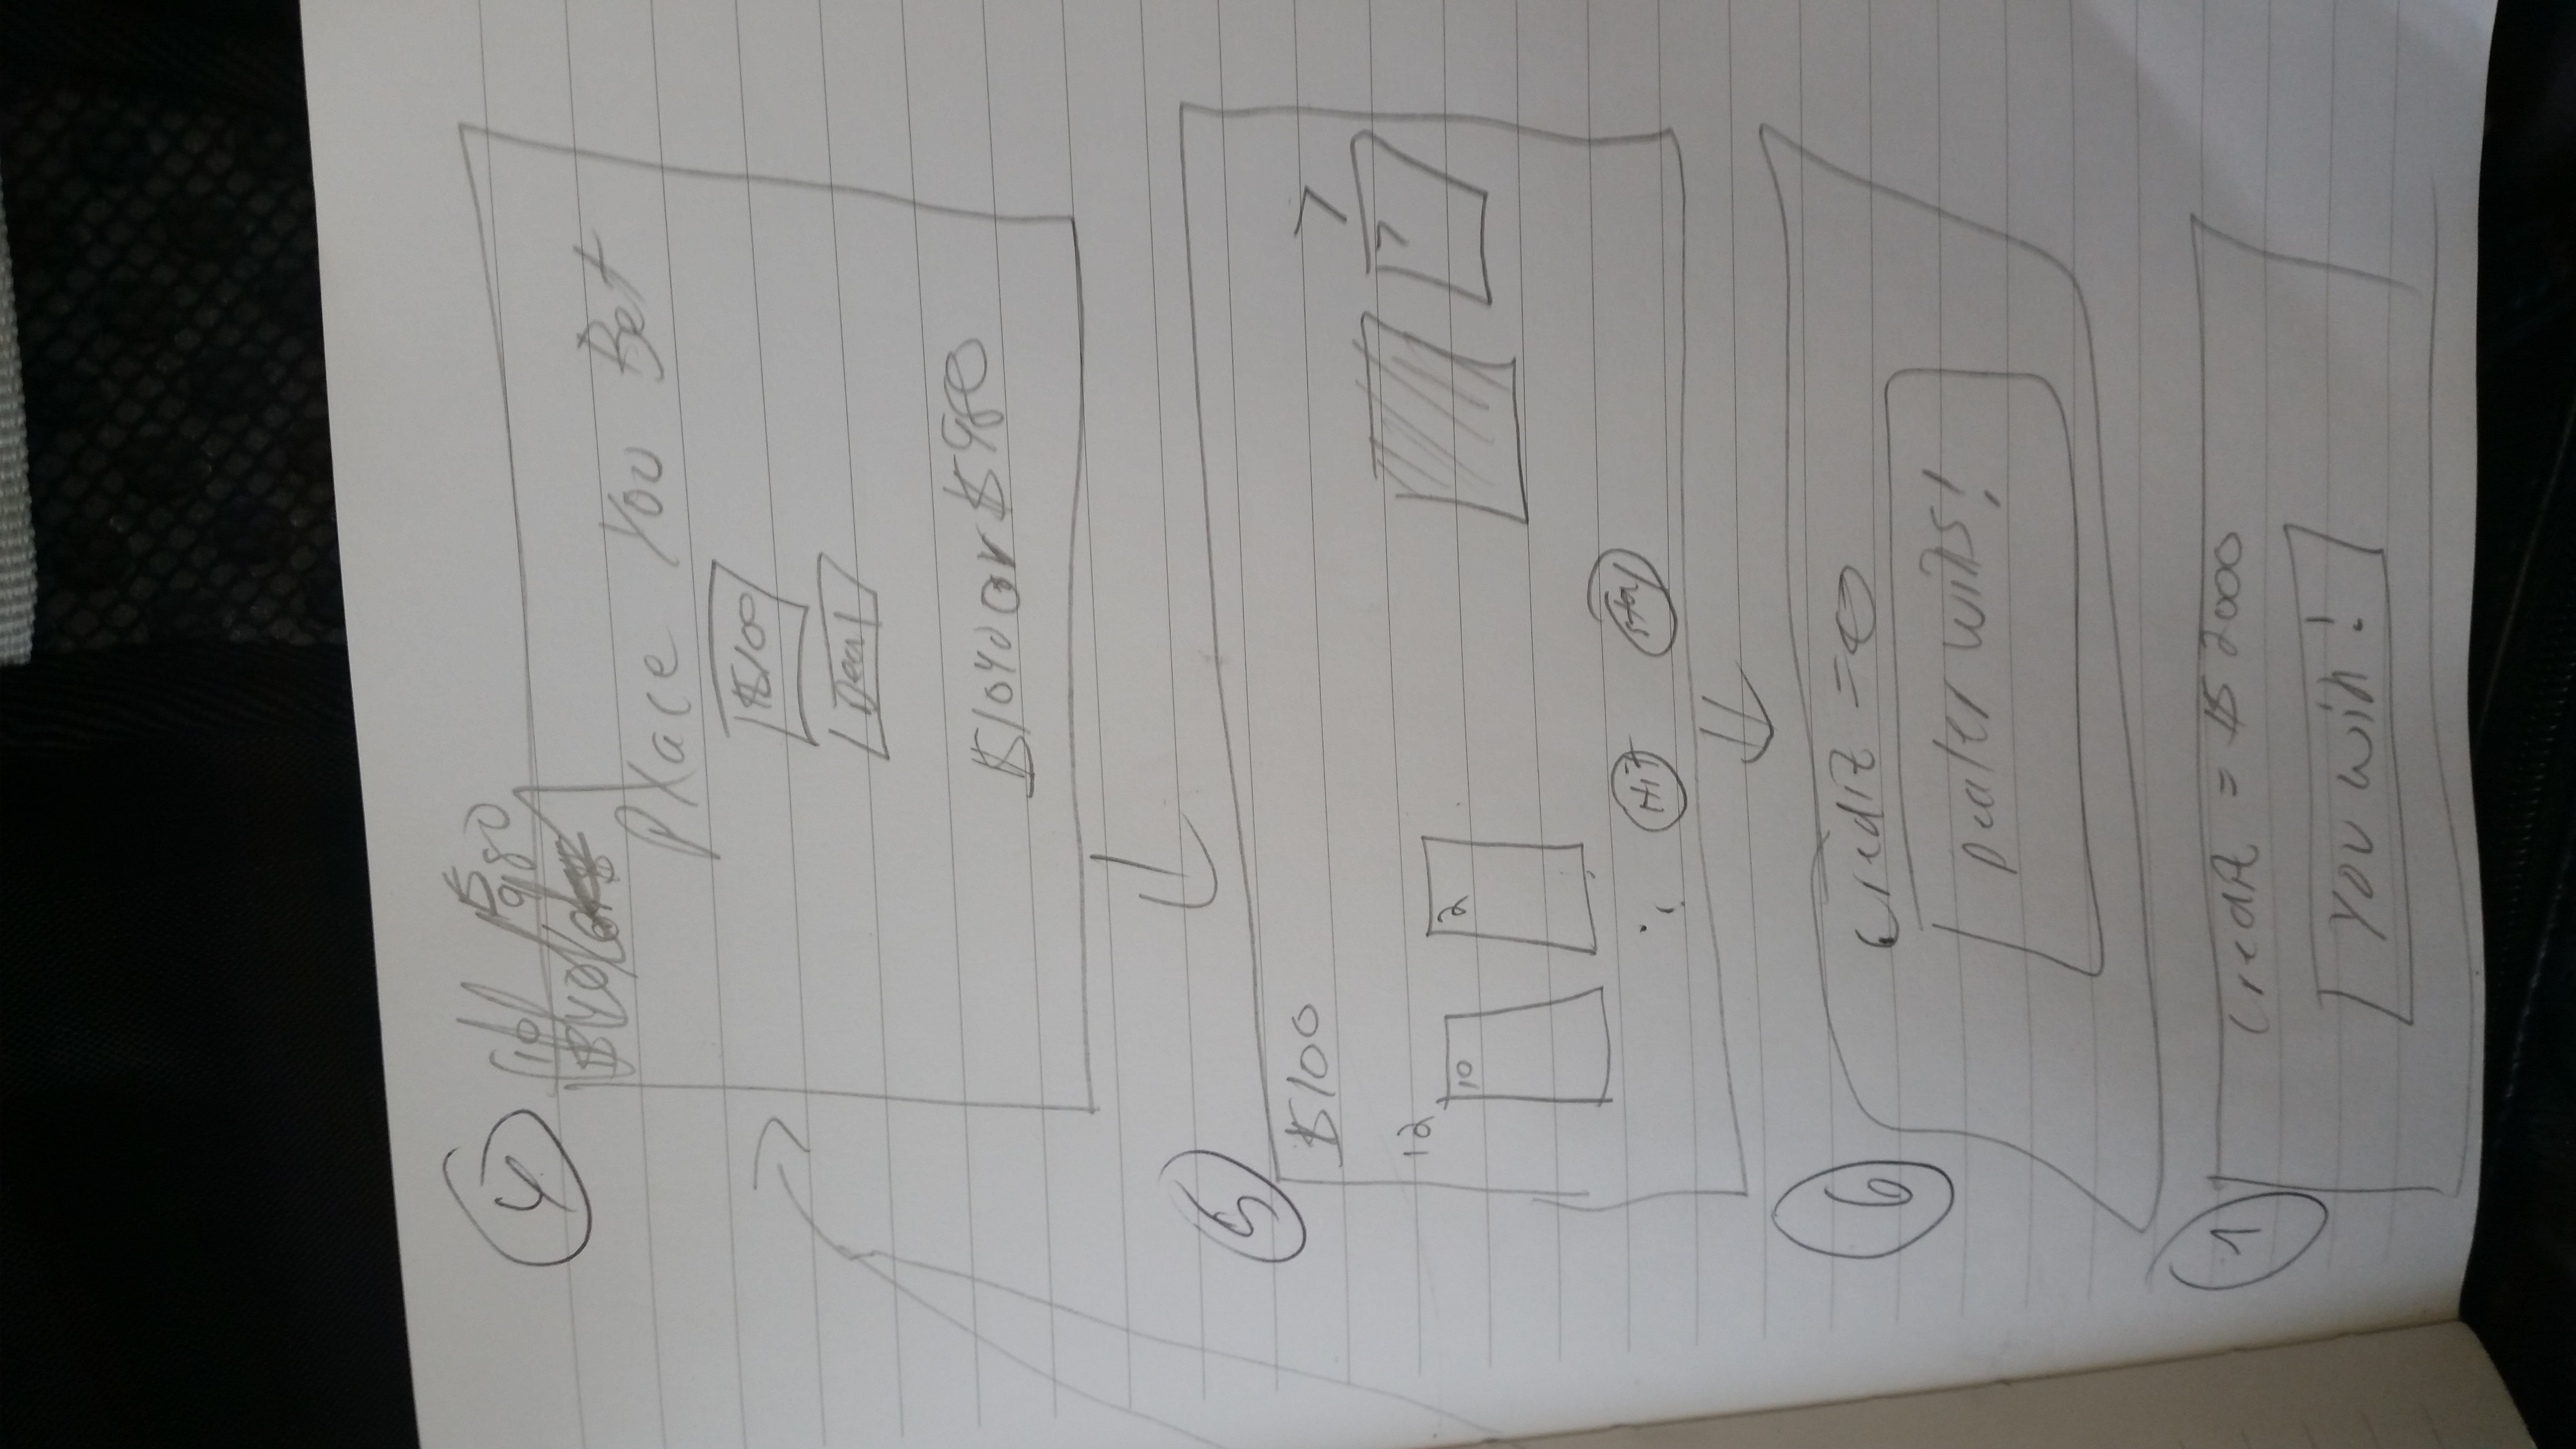 4
Place You Bet
$100
Deal
$1040 or $980
5
$100
7
12
10
2
7
Hit
Stay
6
Credit = 0
Dealer wins!
7
Credit = $2000
You win!